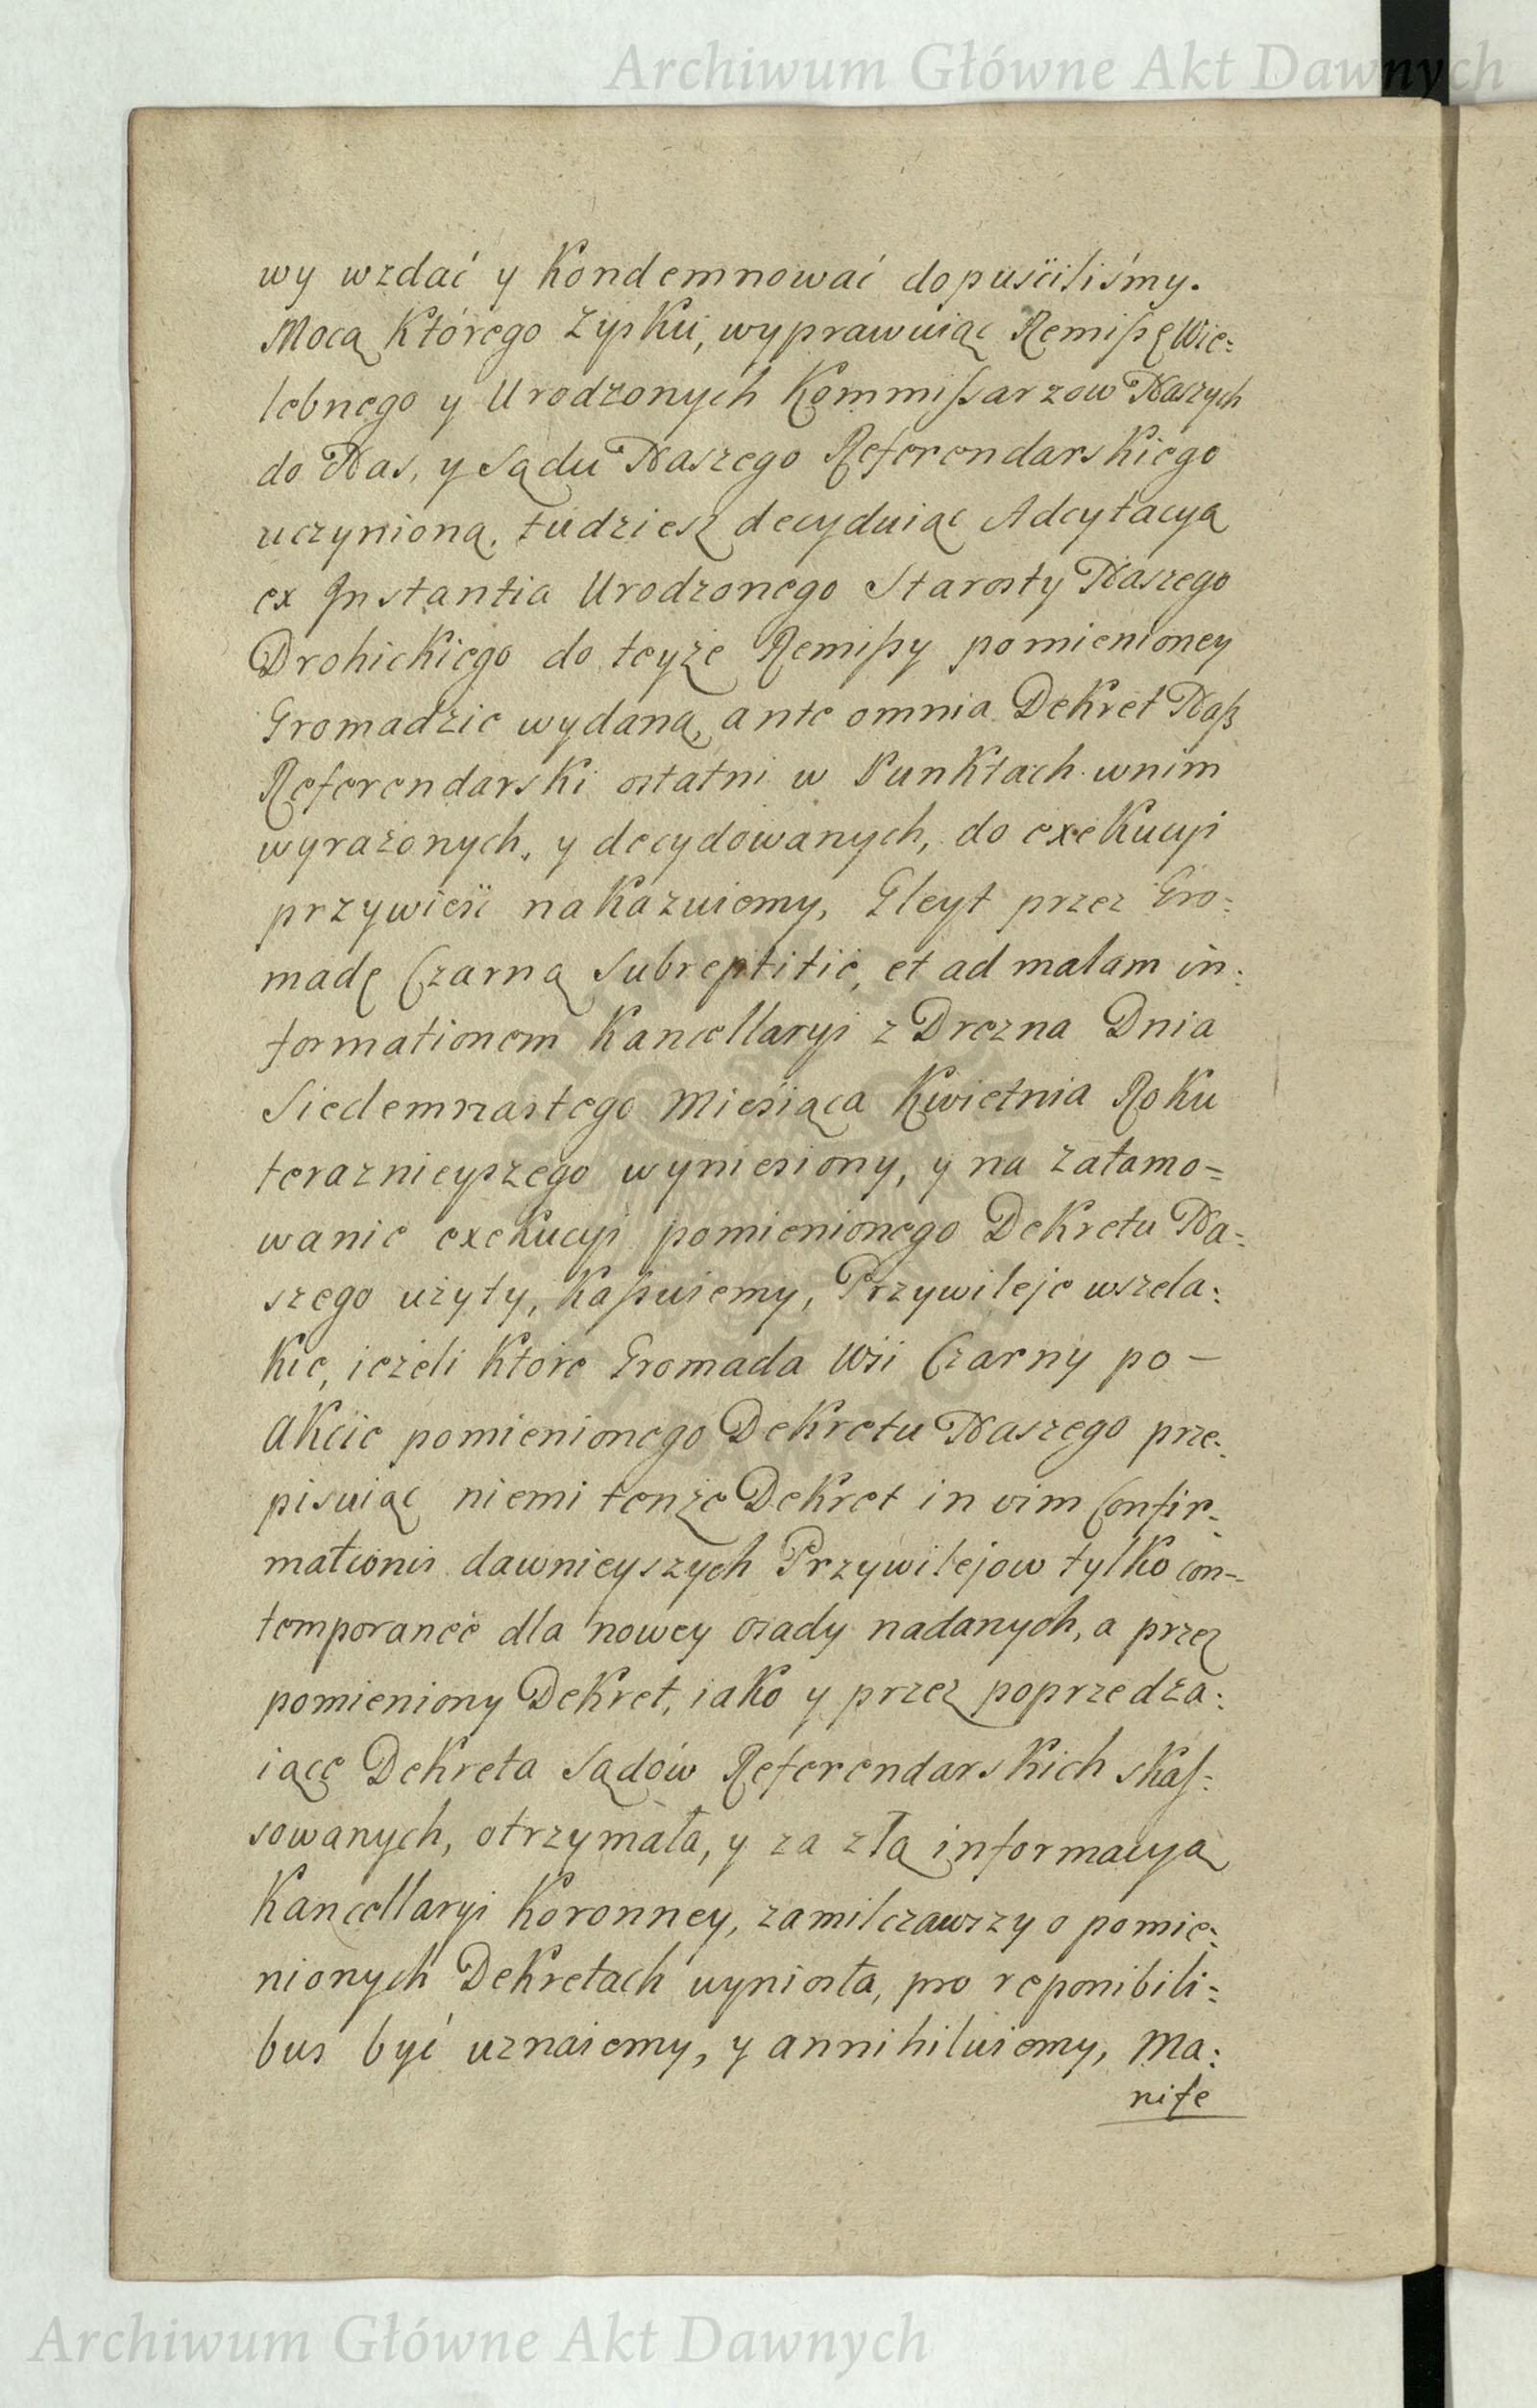 Archiwum Główne Akt Dawnych
wy wzdać y Kondemnować dopuściliśmy.
Mocą Którego Zysku, wyprawuiąc Remissę Wie:
lebnego y Urodzonych Kommissarzow Naszych
do Nas, y Sądu Naszego Referendarskiego
uczynioną, tudziesz decyduiąc Adcytacyą
ex Instantia Urodzonego Starosty Naszego
Drohickiego do teyże Remissy pomienioney
Gromadzie wydaną, ante omnia Dekret Nasz
Referendarski ostatni w Punktach wnim
wyrażonych, y decydowanych, do exekucyi
przywieść nakazuiemy, Gleyt przez Gro:
madę Czarną Subreptitie, et ad malam in:
formationem Kancellaryi z Drezna Dnia
Siedemnastego Miesiąca Kwietnia Roku
teraznieyszego wyniesiony, y na zatamo=
wanie exekucyi pomienionego Dekretu Na=
szego użyty, Kassuiemy, Przywileje wszela:
kie, ieżeli Które Gromada Wsi Czarny po-
Akcie pomienionego Dekretu Naszego prze:
pisuiąc niemi tenże Dekret in vim Confir:
mationis dawnieyszych Przywilejow tylko con=
temporaneè dla nowey osady nadanych, a przez
pomieniony Dekret, iako y przez poprzedza:
iące Dekreta Sądów Referendarskich skas:
sowanych, otrzymała, y za złą informacyą
Kancellaryi Koronney, zamilczawszy o pomie:
nionych Dekretach wyniosła, pro reponibili:
bus być uznaiemy, y annihiluiemy, Ma:
nife
Archiwum Główne Akt Dawnych